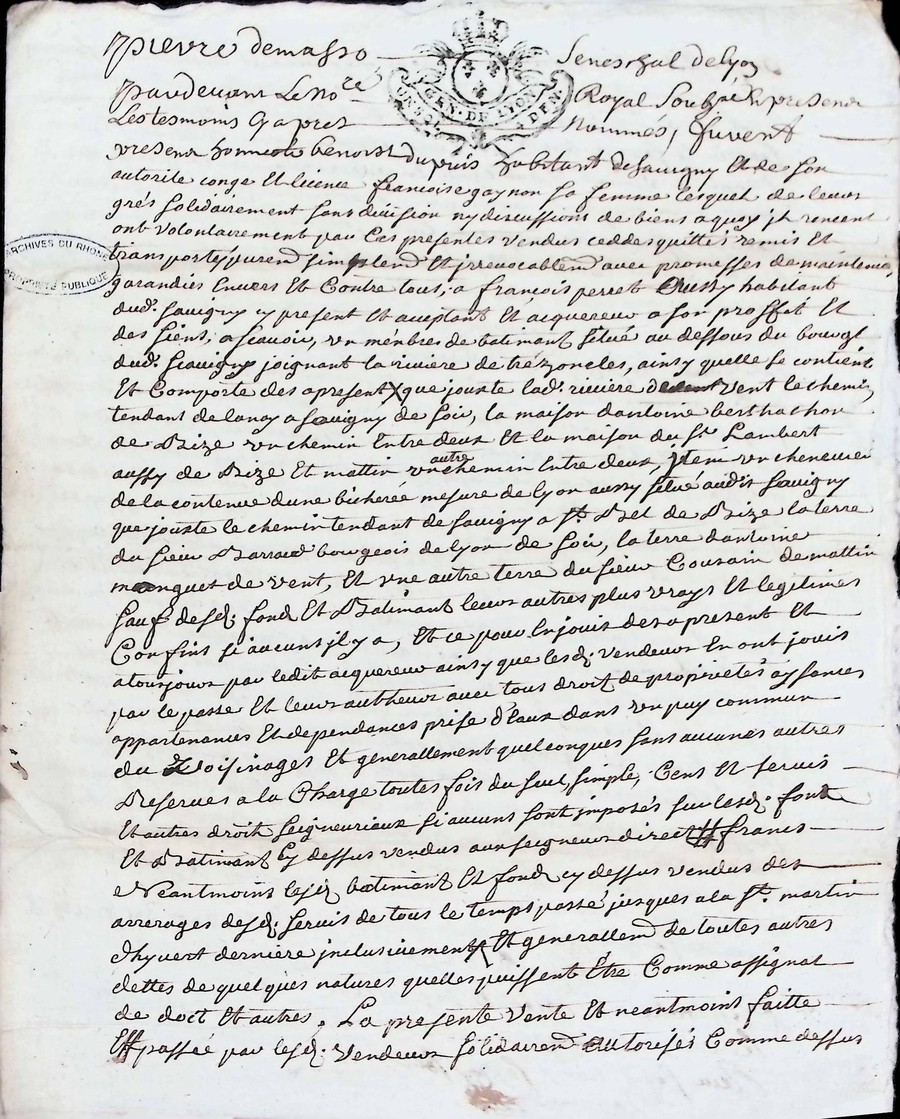 pierre demasso Seneschal de lyon
pardevant Le no.re Royal Soubz.né present
Les tesmoins cy apres nommés, furent
present honneste benoist dupuis habitant de savigny Et de son
autorite conge Et licence francoise gaynon sa femme lesquel de leurs
grés solidairement sans division ny discussions de biens a quoy jls renoncent
ont volontairement par Ces presentes vendus ceddes quittés remis Et
transportés purem.t simplem.t Et irrevocablem.t avec promesses de maintenir
garandies Envers Et Contre tous, a françois perret aussy habitant
dud. savigny cy present Et aceptant Et acquereur a son proffit Et
des siens, a scavoir, un ménbres de batimant situé au dessous du bourgt
dud. Savigny joignant la riviere de trézoncles, ainsy quelle se contient
Et Comporte des apresent que jouxte lad. riviere de vent le chemin
tendant de lanay a savigny de soir, la maison dantoine berthachon
de Bize un chemin Entre deux Et la maison du S.r Lambert
aussy de Bize Et mattin un autre chemin Entre deux, jtem un chenevier
de la contenue dune bicherée mesure de lyon aussy situé audit savigny
que jouxte le chemin tendant de savigny a S.t Bel de Bize la terre
du sieur Barraud bourgeois de lyon de soir, la terre dantoine
manguet de vent, Et une autre terre du sieur Cousain de mattin
sauf desd. fond Et Batimant leurs autres plus vrays Et legitimes
Confins si aucuns jl y a, Et ce pour En jouis des apresent Et
atousjours par ledit acquereur ainsy que lesd. vendeurs En ont jouis
par le passe Et leurs autheurs avec tous droit de propietés aysances
appartenances Et dependances prise d'eaux dans un puy commun
du Voisinages Et generallement quelconques sans aucunes autres
Reserves a la Charge toutes fois du seul, simple, Cens Et servis
Et autres droit seigneuriaux si aucuns sont imposés sur lesd. fond
Et Batimant cy dessus vendus aux seigneurs direct francs
Neantmoins lesd. batimant Et fond cy dessus vendus des
arrerages desd. servis de tous le temps passe jusques a la S.t martin
dhyvert derniere inclusivement Et generallem.t de toutes autres
dettes de quelques natures quelles puissent Être Comme assignat
de doct Et autres, La presente vente Et neantmoins faitte
Et passée par lesd. vendeurs solidairem.t autorisés Comme dessus
ARCHIVES DU RHONE
PROPRIÉTÉ PUBLIQUE
GEN. DE LYON